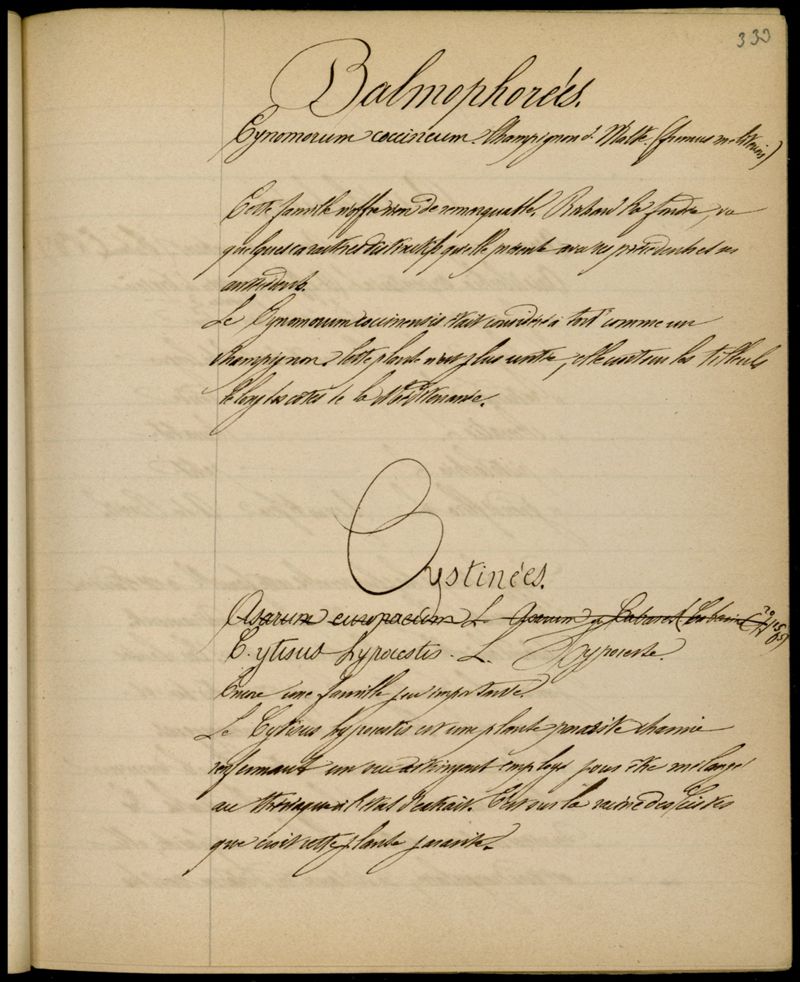 333
Balmophorées.
Cynomorum coccineum. Champignon de Malte. (fumus melitensis)
Cette famille n'offre rien de remarquable. Richard l'a fondée, vu
quelques caractères distinctifs qu'elle présente avec ses précédents et ses
antécédents.
Le Cynomorum coccinensis était considéré à tort comme un
champignon. Cette plante n'est plus usitée, elle croit sur les
le long des côtes de la Méditerranée.
Cystinées.
Asarum europaeum L. Asarum Cabaret
Cytisus hypocistis. L. Hypociste.
Encore une famille peu importante.
Le Cytisus hypocistis est une plante parasite charnue
renfermant un suc astringent employé pour être mélangé
au thériaque à l'état d'extrait. C'est sur la racine des Cistes
que croit cette plante parasite.